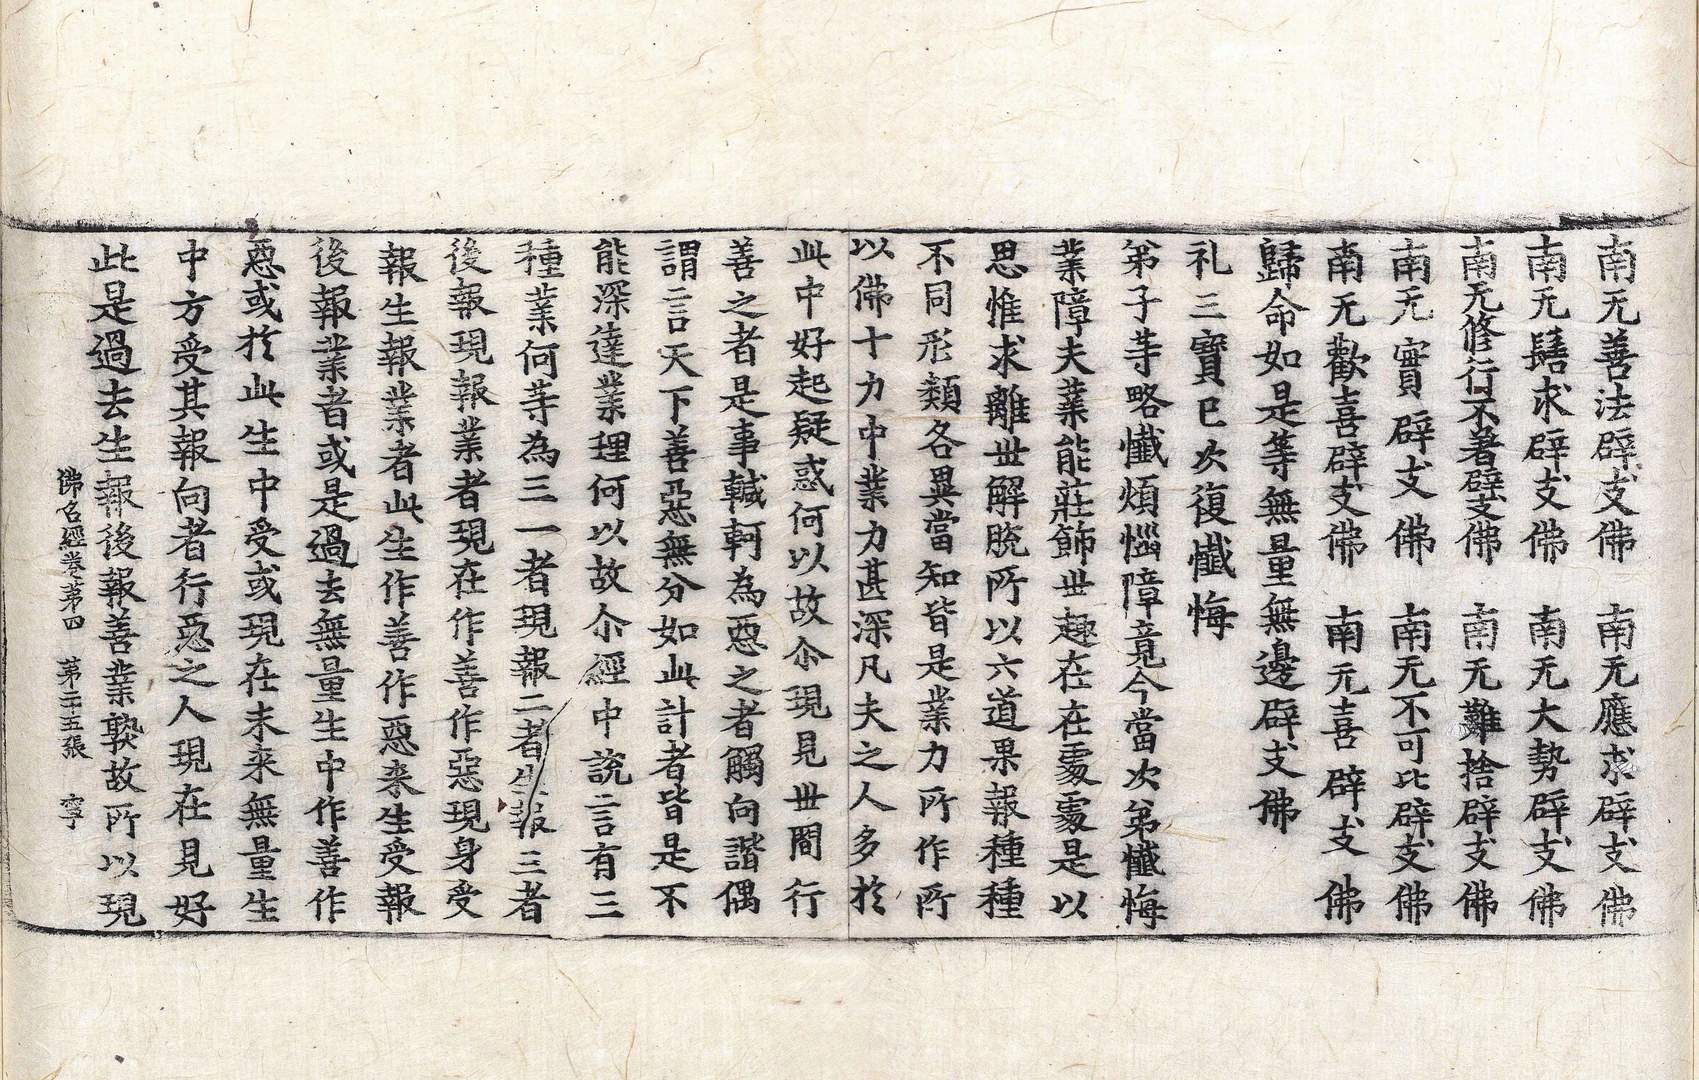 南无善法辟支佛　南无應求辟支佛
南无䭿求辟支佛　南无大勢辟支佛
南无修行不著辟支佛　南无難捨辟支佛
南无實辟支佛　南无不可比辟支佛
南无歡喜辟支佛　南无喜辟支佛
歸命如是等無量無邊辟支佛
礼三寶已次復懺悔
弟子等略懺煩惱障竟今當次弟懺悔
業障夫業能莊飾世趣在在處處是以
思惟求離世解脫所以六道果報種種
不同形類各異當知皆是業力所作所
以佛十力中業力甚深凡夫之人多於
此中好起疑惑何以故尒現見世閒行
善之者是事轗軻為惡之者觸向諧偶
謂言天下善惡無分如此計者皆是不
能深達業理何以故尒經中說言有三
種業何等為三一者現報二者生報三者
後報現報業者現在作善作惡現身受
報生報業者此生作善作惡来生受報
後報業者或是過去無量生中作善作
惡或於此生中受或現在未来無量生
中方受其報向者行惡之人現在見好
此是過去生報後報善業𤍨故所以現
佛名經卷第四　第二十五張　寧